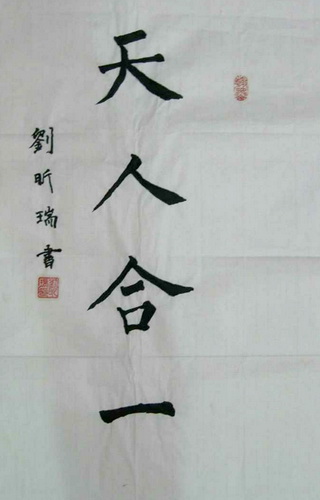 天人合一
劉昕瑞書